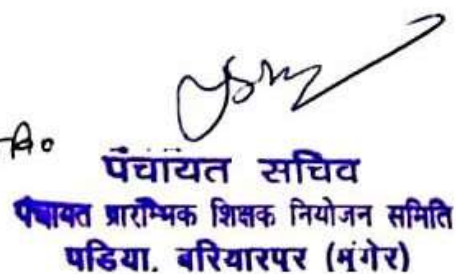 पंचायत सचिव
पंचायत प्रारम्भिक शिक्षक नियोजन समिति
पडिया, बरियारपुर (मुंगेर)